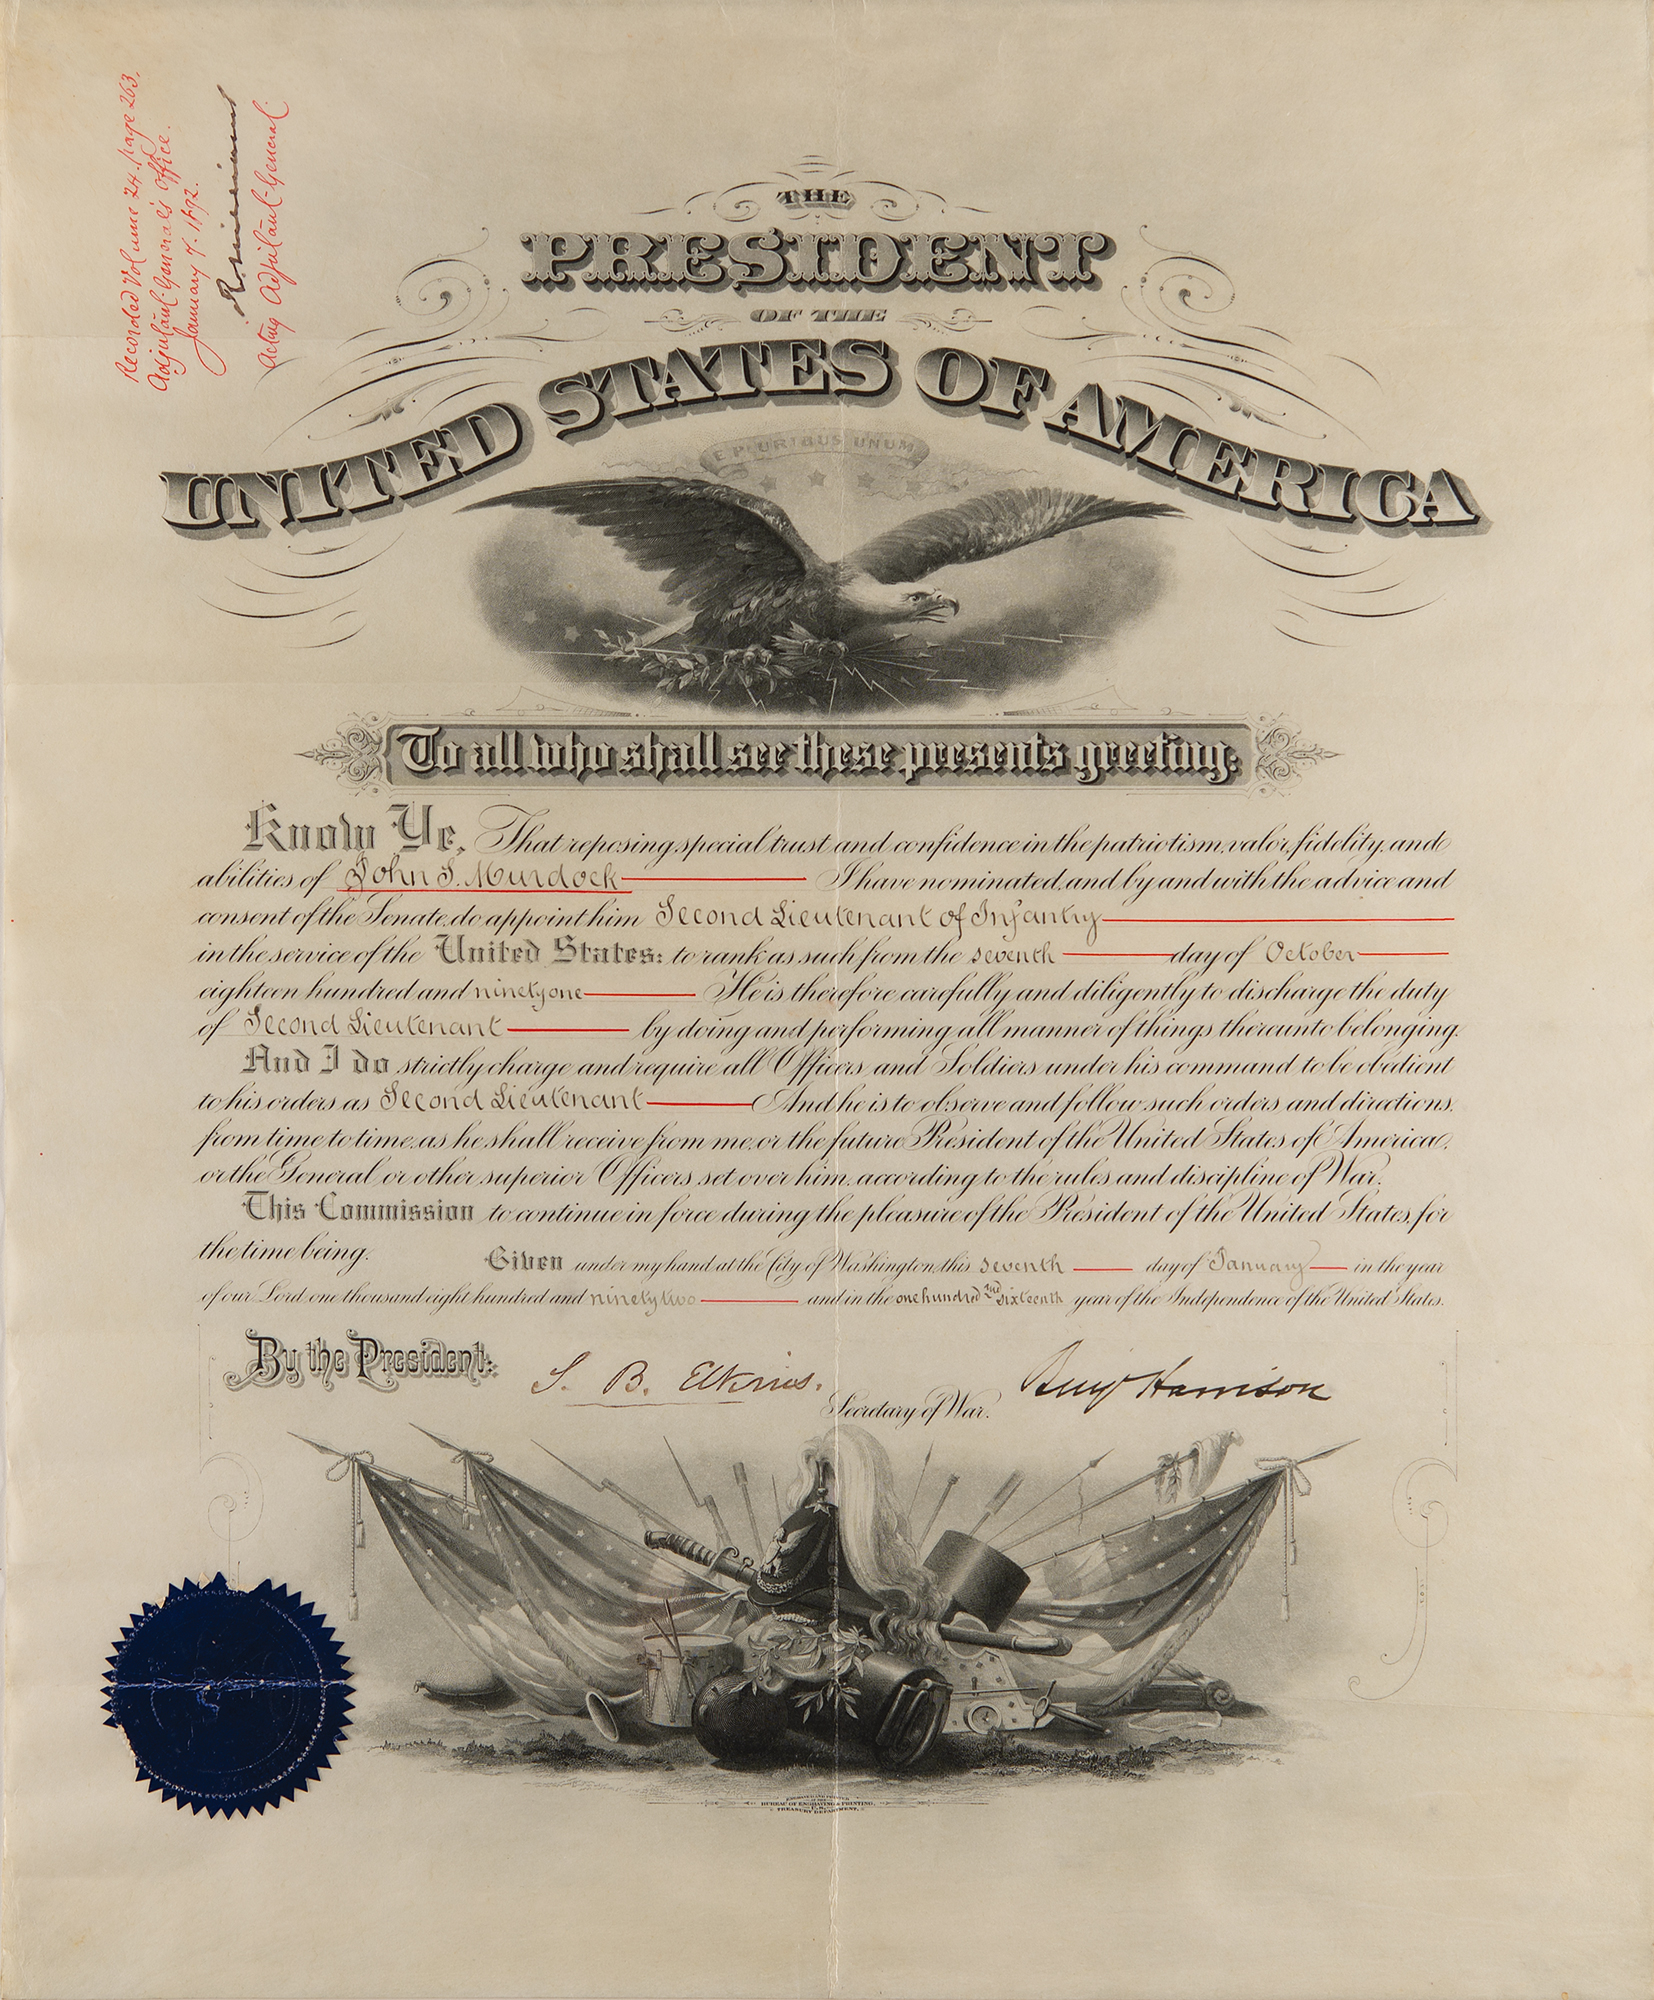 Recorded Volume 24. page 263.
Adjutant General's Office.
January 7. 1892.
Acting Adjutant General.
THE
PRESIDENT
OF THE
UNITED STATES OF AMERICA
E PLURIBUS UNUM
To all who shall see these presents greeting:
Know Ye, That reposing special trust and confidence in the patriotism, valor, fidelity, and
abilities of John S. Murdock I have nominated, and by and with the advice and
consent of the Senate, do appoint him Second Lieutenant of Infantry
in the service of the United States: to rank as such from the seventh day of October
eighteen hundred and ninety one He is therefore carefully and diligently to discharge the duty
of Second Lieutenant by doing and performing all manner of things thereunto belonging.
And I do strictly charge and require all Officers and Soldiers under his command to be obedient
to his orders as Second Lieutenant And he is to observe and follow such orders, and directions,
from time to time, as he shall receive from me, or the future President of the United States of America,
or the General or other superior Officers set over him, according to the rules and discipline of War.
This Commission to continue in force during the pleasure of the President of the United States, for
the time being. Given under my hand at the City of Washington, this seventh day of January in the year
of our Lord one thousand eight hundred and ninety two and in the one hundred and sixteenth year of the Independence of the United States.
By the President: S. B. Elkins. Benj Harrison
Secretary of War.
BUREAU OF ENGRAVING & PRINTING,
TREASURY DEPARTMENT.